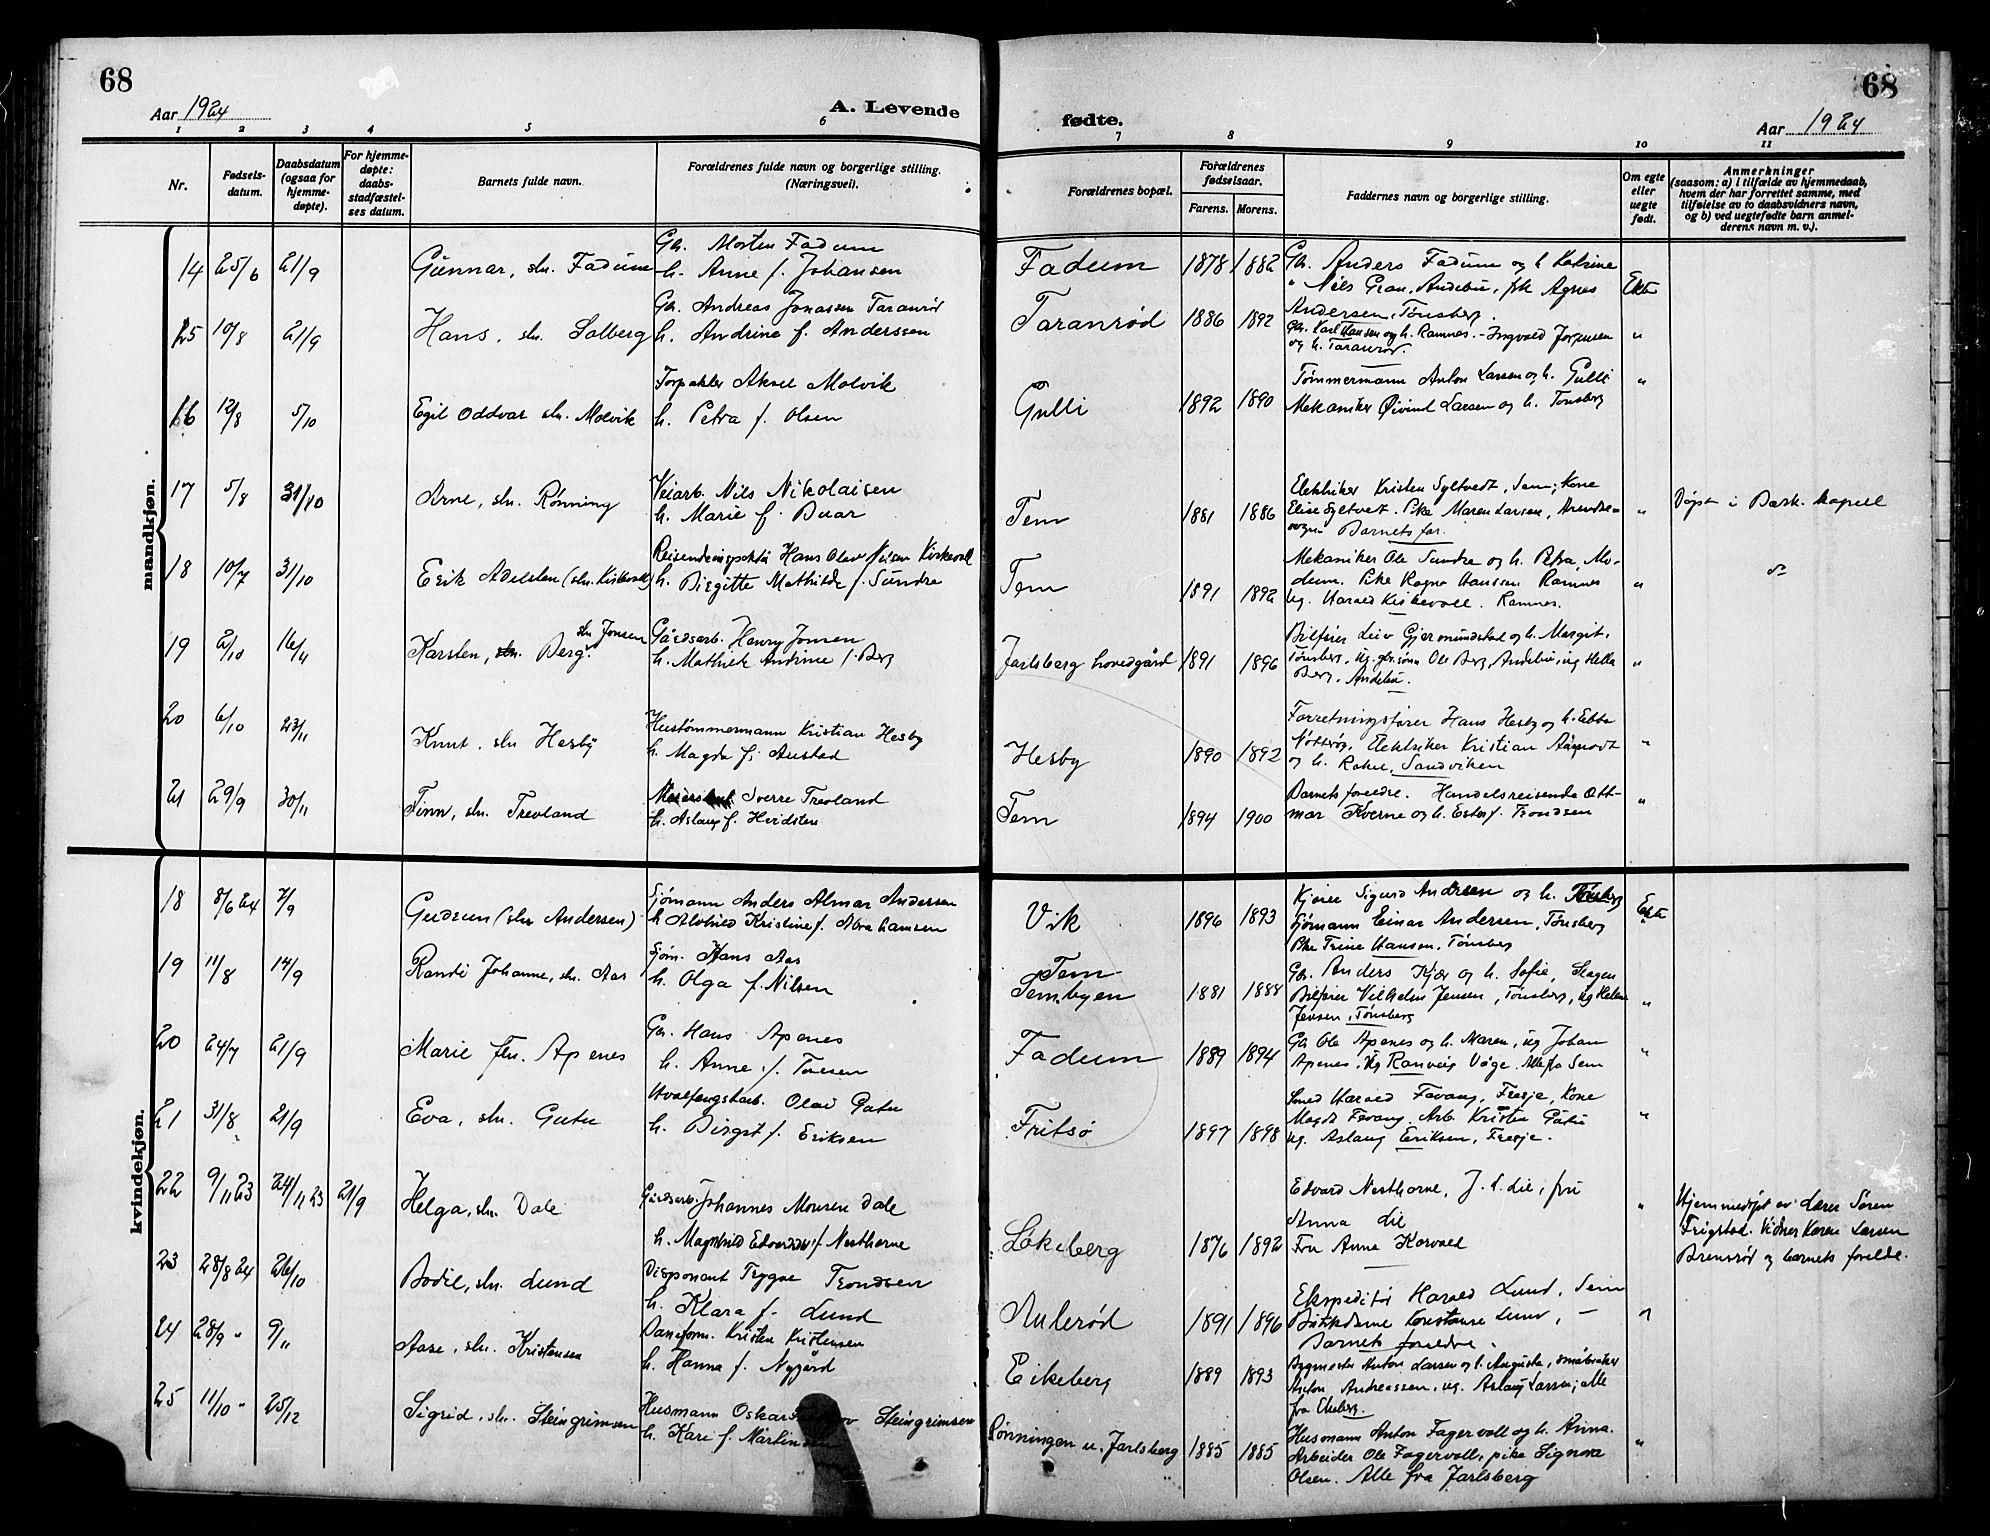 68
Aar 1924
A. Levende
fødte.
Aar 1924
68
1 2 3 4 5 6 7 8 9 10 11
Nr.
Fødsels-
datum.
Daabsdatum
(ogsaa for
hjemme-
døpte).
For hjemme-
døpte:
daabs-
stadfæstel-
ses datum.
Barnets fulde navn.
Forældrenes fulde navn og borgerlige stilling.
(Næringsvei).
Forældrenes bopæl.
Forældrenes
fødselsaar.
Farens. Morens.
Faddernes navn og borgerlige stilling.
Om egte
eller
uegte
født.
Anmerkninger
(saasom: a) i tilfælde av hjemmedaab,
hvem der har forrettet samme, med
tilføielse av to daabsvidners navn,
og b) ved uegtefødte barn anmel-
derens navn m. v.).
mandkjøn.
14 25/6 21/9 Gunnar, sln. Fadum
Gbr. Morten Fadum
h. Anne f. Johansen
Fadum 1878 1882
Gbr. Anders Fadum og h. Katrine
" Nils Gran, Andebu, frk Agnes
Andersen, Tønsberg.
Ekte
15 10/8 21/9 Hans, sln. Solberg
Gbr. Andreas Jonassen Taranrød
h. Andrine f. Anderssen
Taranrød 1886 1892
Gbr. Karl Hansen og h. Ramnes. - Ingvald
og h. Taranrød.
"
16 12/8 5/10 Egil Oddvar sln. Molvik
Forpakter Aksel Molvik
h. Petra f. Olsen
Gulli 1892 1890
Tømmermann Anton Larsen og h. Gulli
Mekaniker Øivind Larsen og h. Tønsberg
"
17 5/8 31/10 Arne, sln. Rønning
Veiarb. Nils Nikolaisen
h. Marie f. Buar
Sem 1881 1886
Elektriker Kristen Syltvedt, Sem; Kone
Elise Syltvedt. Pike Maren Larsen,
Barnets far.
"
Døpt i Bark. kapell
18 10/7 31/10 Erik Adelsten (sln. Kirkevoll)
Hans Olav Nilsen Kirkevoll
h. Birgitte Mathilde f. Sundre
Sem 1891 1892
Mekaniker Ole Sundre og h. Petra, Mo-
dum. Pike Ragna Hanssen Ramnes
Ug. Harald Kirkevoll. Ramnes.
"
19 2/10 16/11 Karsten, sln. Berg. sln Jonsen
Gårdsarb. Henry Jonsen
h. Mathilde Andrine f. Berg
Jarlsberg hovedgård 1891 1896
Bilfører Leiv Gjermundstad og h. Margit,
Tønsberg, Ug. gbr.sønn Ole Berg, Andebu, ug Hella
Berg, Andebu.
"
20 6/10 23/11 Knut, sln Hesby
Hustømmermann Kristian Hesby
h. Magda f. Austad
Hesby 1890 1892
Forretningsfører Hans Hesby og h. Ebba
Nøtterøy, Elektriker Kristian
og h. Rakel, Sandviken
"
21 29/9 30/11 Finn, sln. Trevland
Sverre Trevland
h. Aslaug f. Hvidsten
Sem 1894 1900
Barnets foreldre. Handelsreisende Ott-
mar Kverne og h. Ester f. Trondsen
"
kvindekjøn.
18 8/6 24 7/9 Gudrun (sln Andersen)
Sjømann Anders Almar Andersen
h Alvhild Kristine f. Abrahamsen
Vik 1896 1893
Kjører Sigurd Andersen og h. Tønsberg
Sjømann Einar Andersen, Tønsberg
Pike Trine Hansen, Tønsberg
Ekte
19 11/8 14/9 Randi Johanne, sln. Aas
Sjøm. Hans Aas
h. Olga f. Nilsen
Sem
Sembyen 1881 1888
Gbr. Anders Kjær og h. Sofie, Slagen
Bilfører Vilhelm Jensen, Tønsberg, ug Helene
Jensen, Tønsberg
"
20 24/7 21/9 Marie sln. Apenes
Gbr. Hans Apenes
h. Anne f. Toresen
Fadum 1889 1894
Gbr Ole Apenes og h. Maren, ug Johan
Apenes, Ug Ranveig Våge. Alle fra Sem
"
21 31/8 21/9 Eva, sln. Gutu
Hvalfangstarb. Olav Gutu
h. Birgit f. Eriksen
Fritsø 1897 1898
Smed Harald Fevang, Freje, Kone
Magda Fevang, Arb. Kristen Gutu
Ug. Aslaug Eriksen, Freje.
"
22 9/11 23 24/11 23 21/9 Helga, sln. Dale
Gårdsarb. Johannes Monsen Dale
h. Magnhild f. Nesthorne
Løkeberg 1876 1892
Edvard Nesthorne, J. L. Lie, fru
Anna Lie
Fru Anna Korvald
"
Hjemmedøpt av Lærer Søren
Frigstad. Vidner Karen Larsen
Brensrød og barnets foreldre.
23 28/8 24 26/10 Bodil, sln. Lund
Disponent Trygve Trondsen
h. Klara f. Lund
Aulerød 1891 1896
Ekspeditør Harald Lund, Sem
Butikdame Konstanse Lund, —
Barnets foreldre.
"
24 28/9 " 9/11 Aase, sln. Kristensen
Kristen Kristensen
h. Hanna f. Nygård
Eikeberg 1889 1893
Bygmester Anton Larsen og h. Augusta, småbruker
Anton Andreassen, ug. Aslaug Larsen; alle
fra Ekeberg.
25 11/10 " 25/12 Sigrid, sln. Steingrimsen
Husmann Oskar Steingrimsen
h. Kari f. Martinsen
Rønningen u. Jarlsberg 1885 1885
Husmann Anton Fagervoll og h. Anna.
Arbeider Ole Fagervoll, pike Signora
Olsen. Alle fra Jarlsberg
"